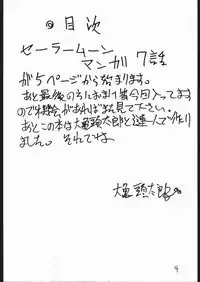 ◎目次
セーラームーン
マンガ 7話
が5ページから始まります。
あと最後の方におまけ等今回入ってます
ので機会があればまた見て下さい。
あとこの本は大亀頭太郎と達人で作り
ました。それでは
大亀頭太郎
4